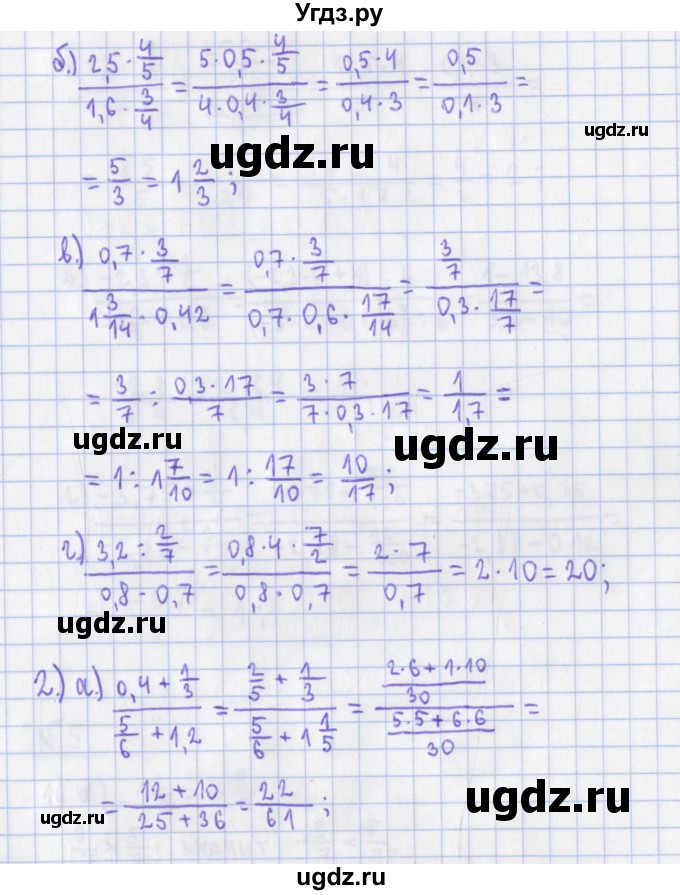 Угдз.ру
б.) (2,5 · 4/5)/(1,6 · 3/4) = (5 · 0,5 · 4/5)/(4 · 0,4 · 3/4) = (0,5 · 4)/(0,4 · 3) = 0,5/(0,1 · 3) =
ugdz.ru
ugdz.ru
= 5/3 = 1 2/3 ;
ugdz.ru
в.) (0,7 · 3/7)/(1 3/14 · 0,42) = (0,7 · 3/7)/(0,7 · 0,6 · 17/14) = (3/7)/(0,3 · 17/7) =
= 3/7 : (0,3 · 17)/7 = (3 · 7)/(7 · 0,3 · 17) = 1/1,7 =
ugdz.ru
ugdz.ru
= 1 : 1 7/10 = 1 : 17/10 = 10/17 ;
г.) (3,2 : 2/7)/(0,8 · 0,7) = (0,8 · 4 · 7/2)/(0,8 · 0,7) = (2 · 7)/0,7 = 2 · 10 = 20;
ugdz.ru
ugdz.ru
2.) а.) (0,4 + 1/3)/(5/6 + 1,2) = (2/5 + 1/3)/(5/6 + 1 1/5) = ((2·6 + 1·10)/30)/((5·5 + 6·6)/30) =
= (12 + 10)/(25 + 36) = 22/61 ;
ugdz.ru
ugdz.ru